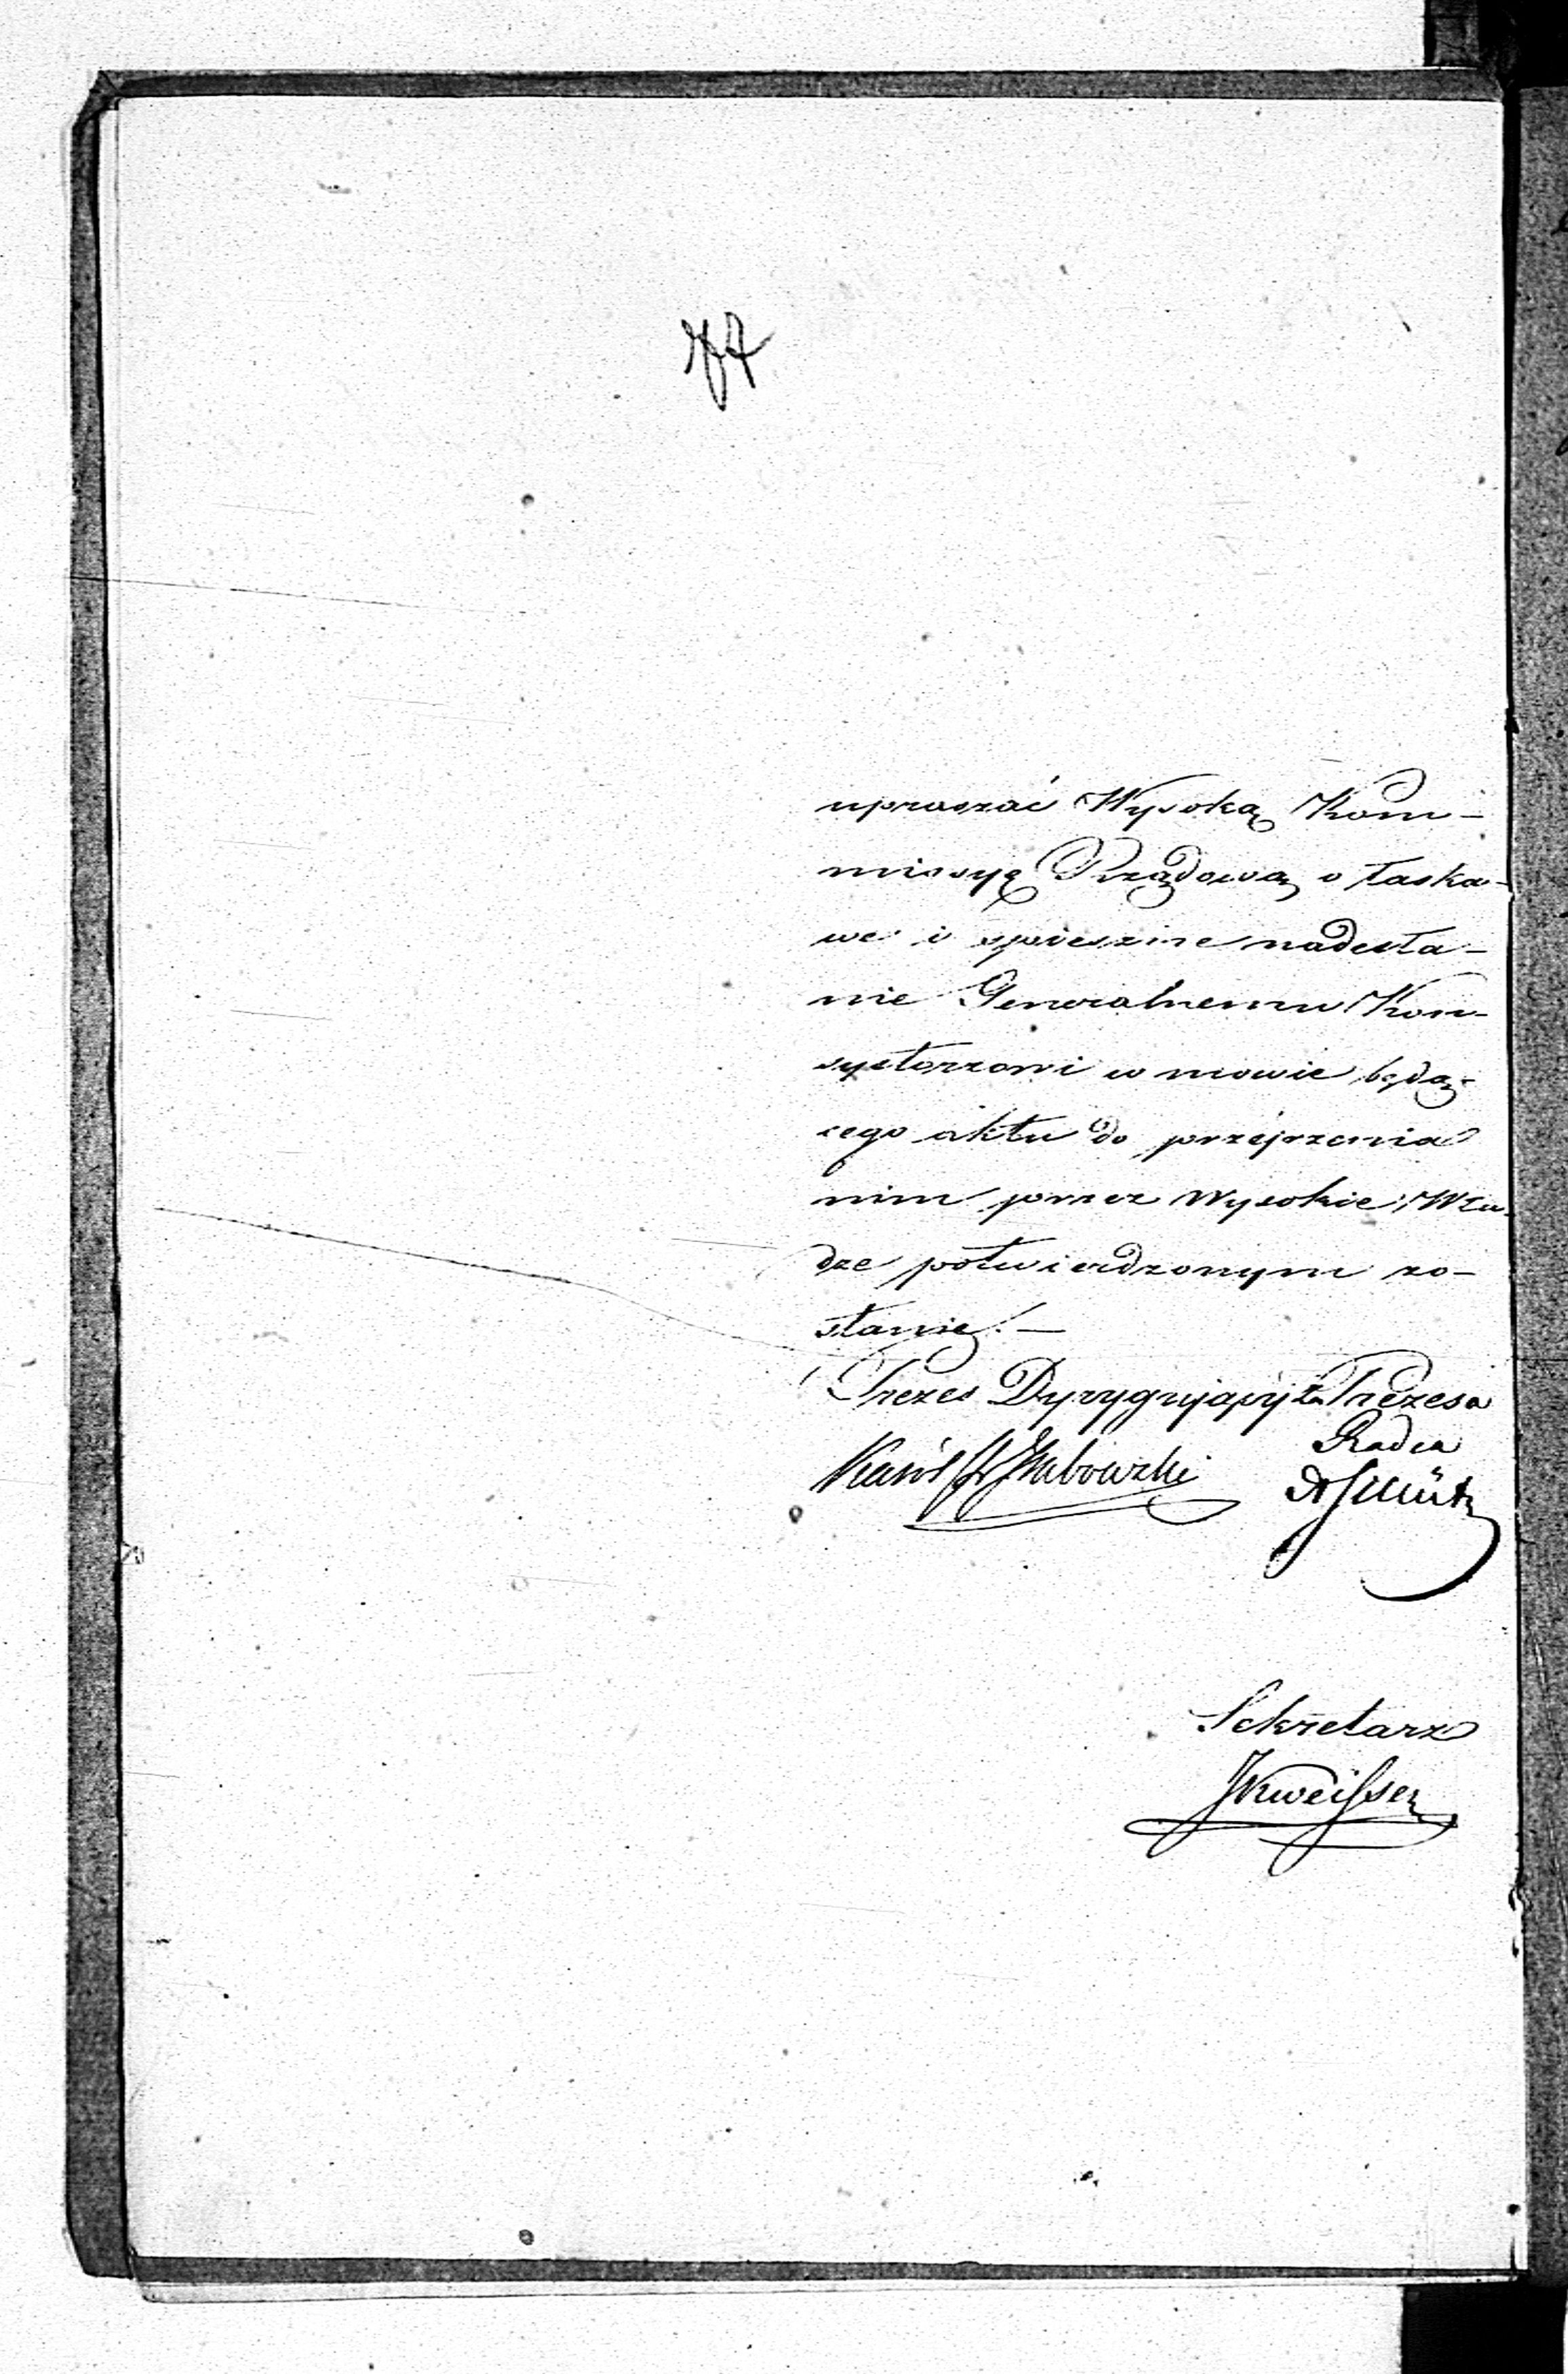 upraszać Wysoką Kom-
missyę Rządową o łaska-
we i spieszne nadesła-
nie Generalnemu Kon-
systorzowi w mowie będą-
cego aktu do przejrzenia
nim przez Wysokie Wła-
dze potwierdzonym zo-
stanie. —
Prezes Dyrygujący za Prezesa
Radca
Karól
Sekretarz